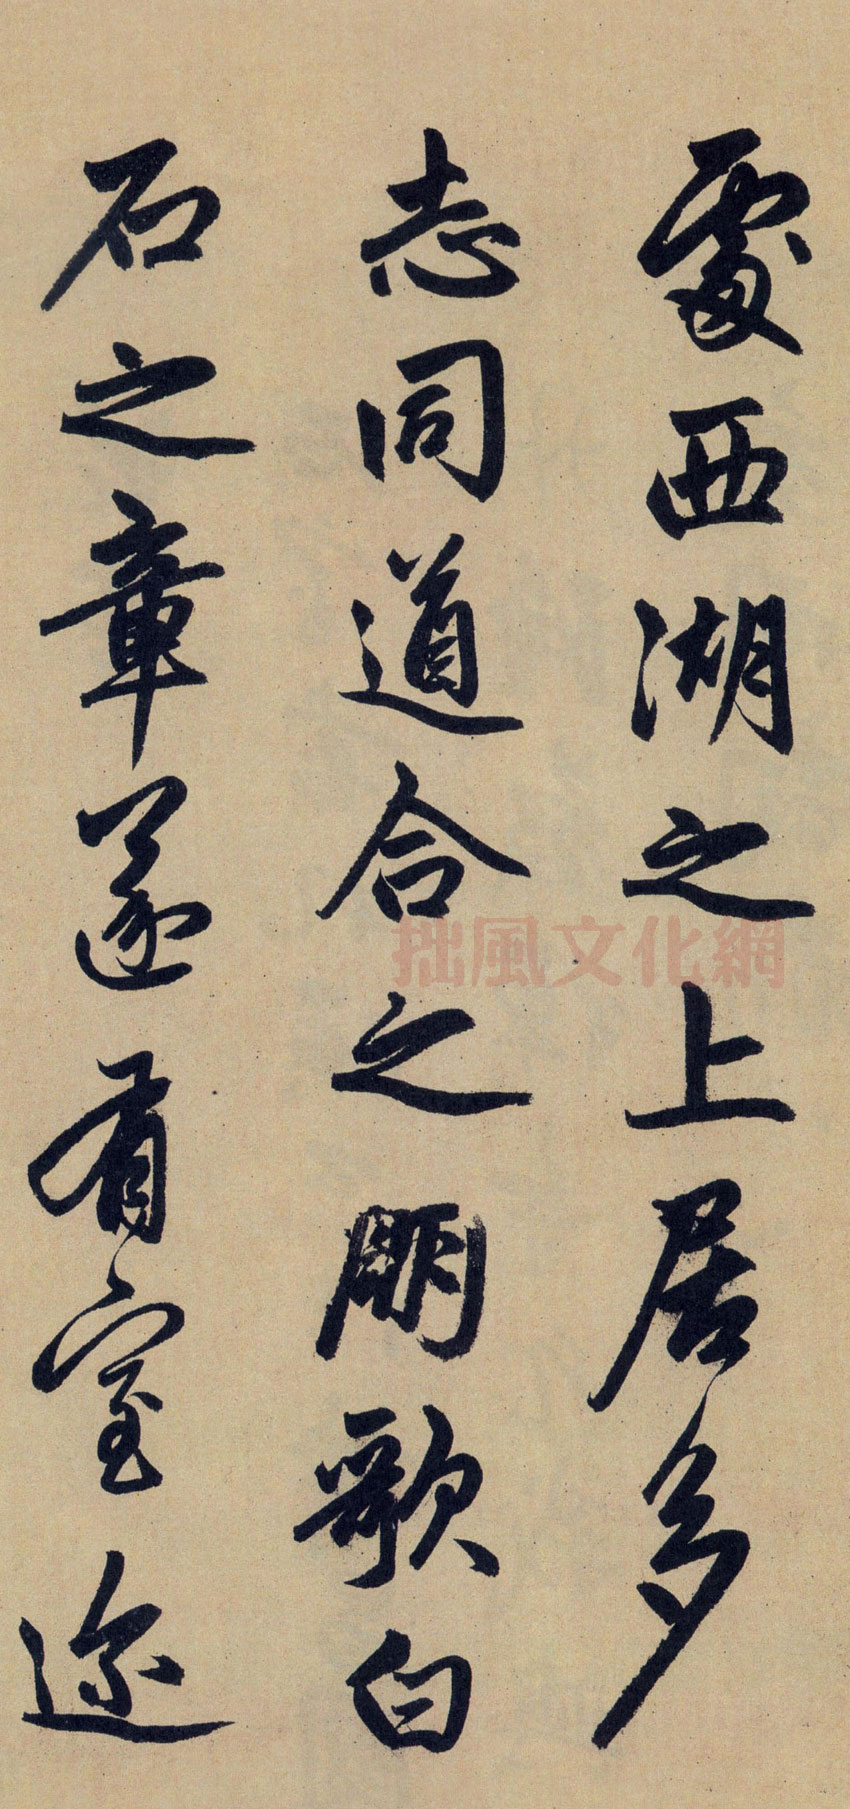 處西湖之上居多
志同道合之朋歌白
石之章遂有室迩
拙風文化網